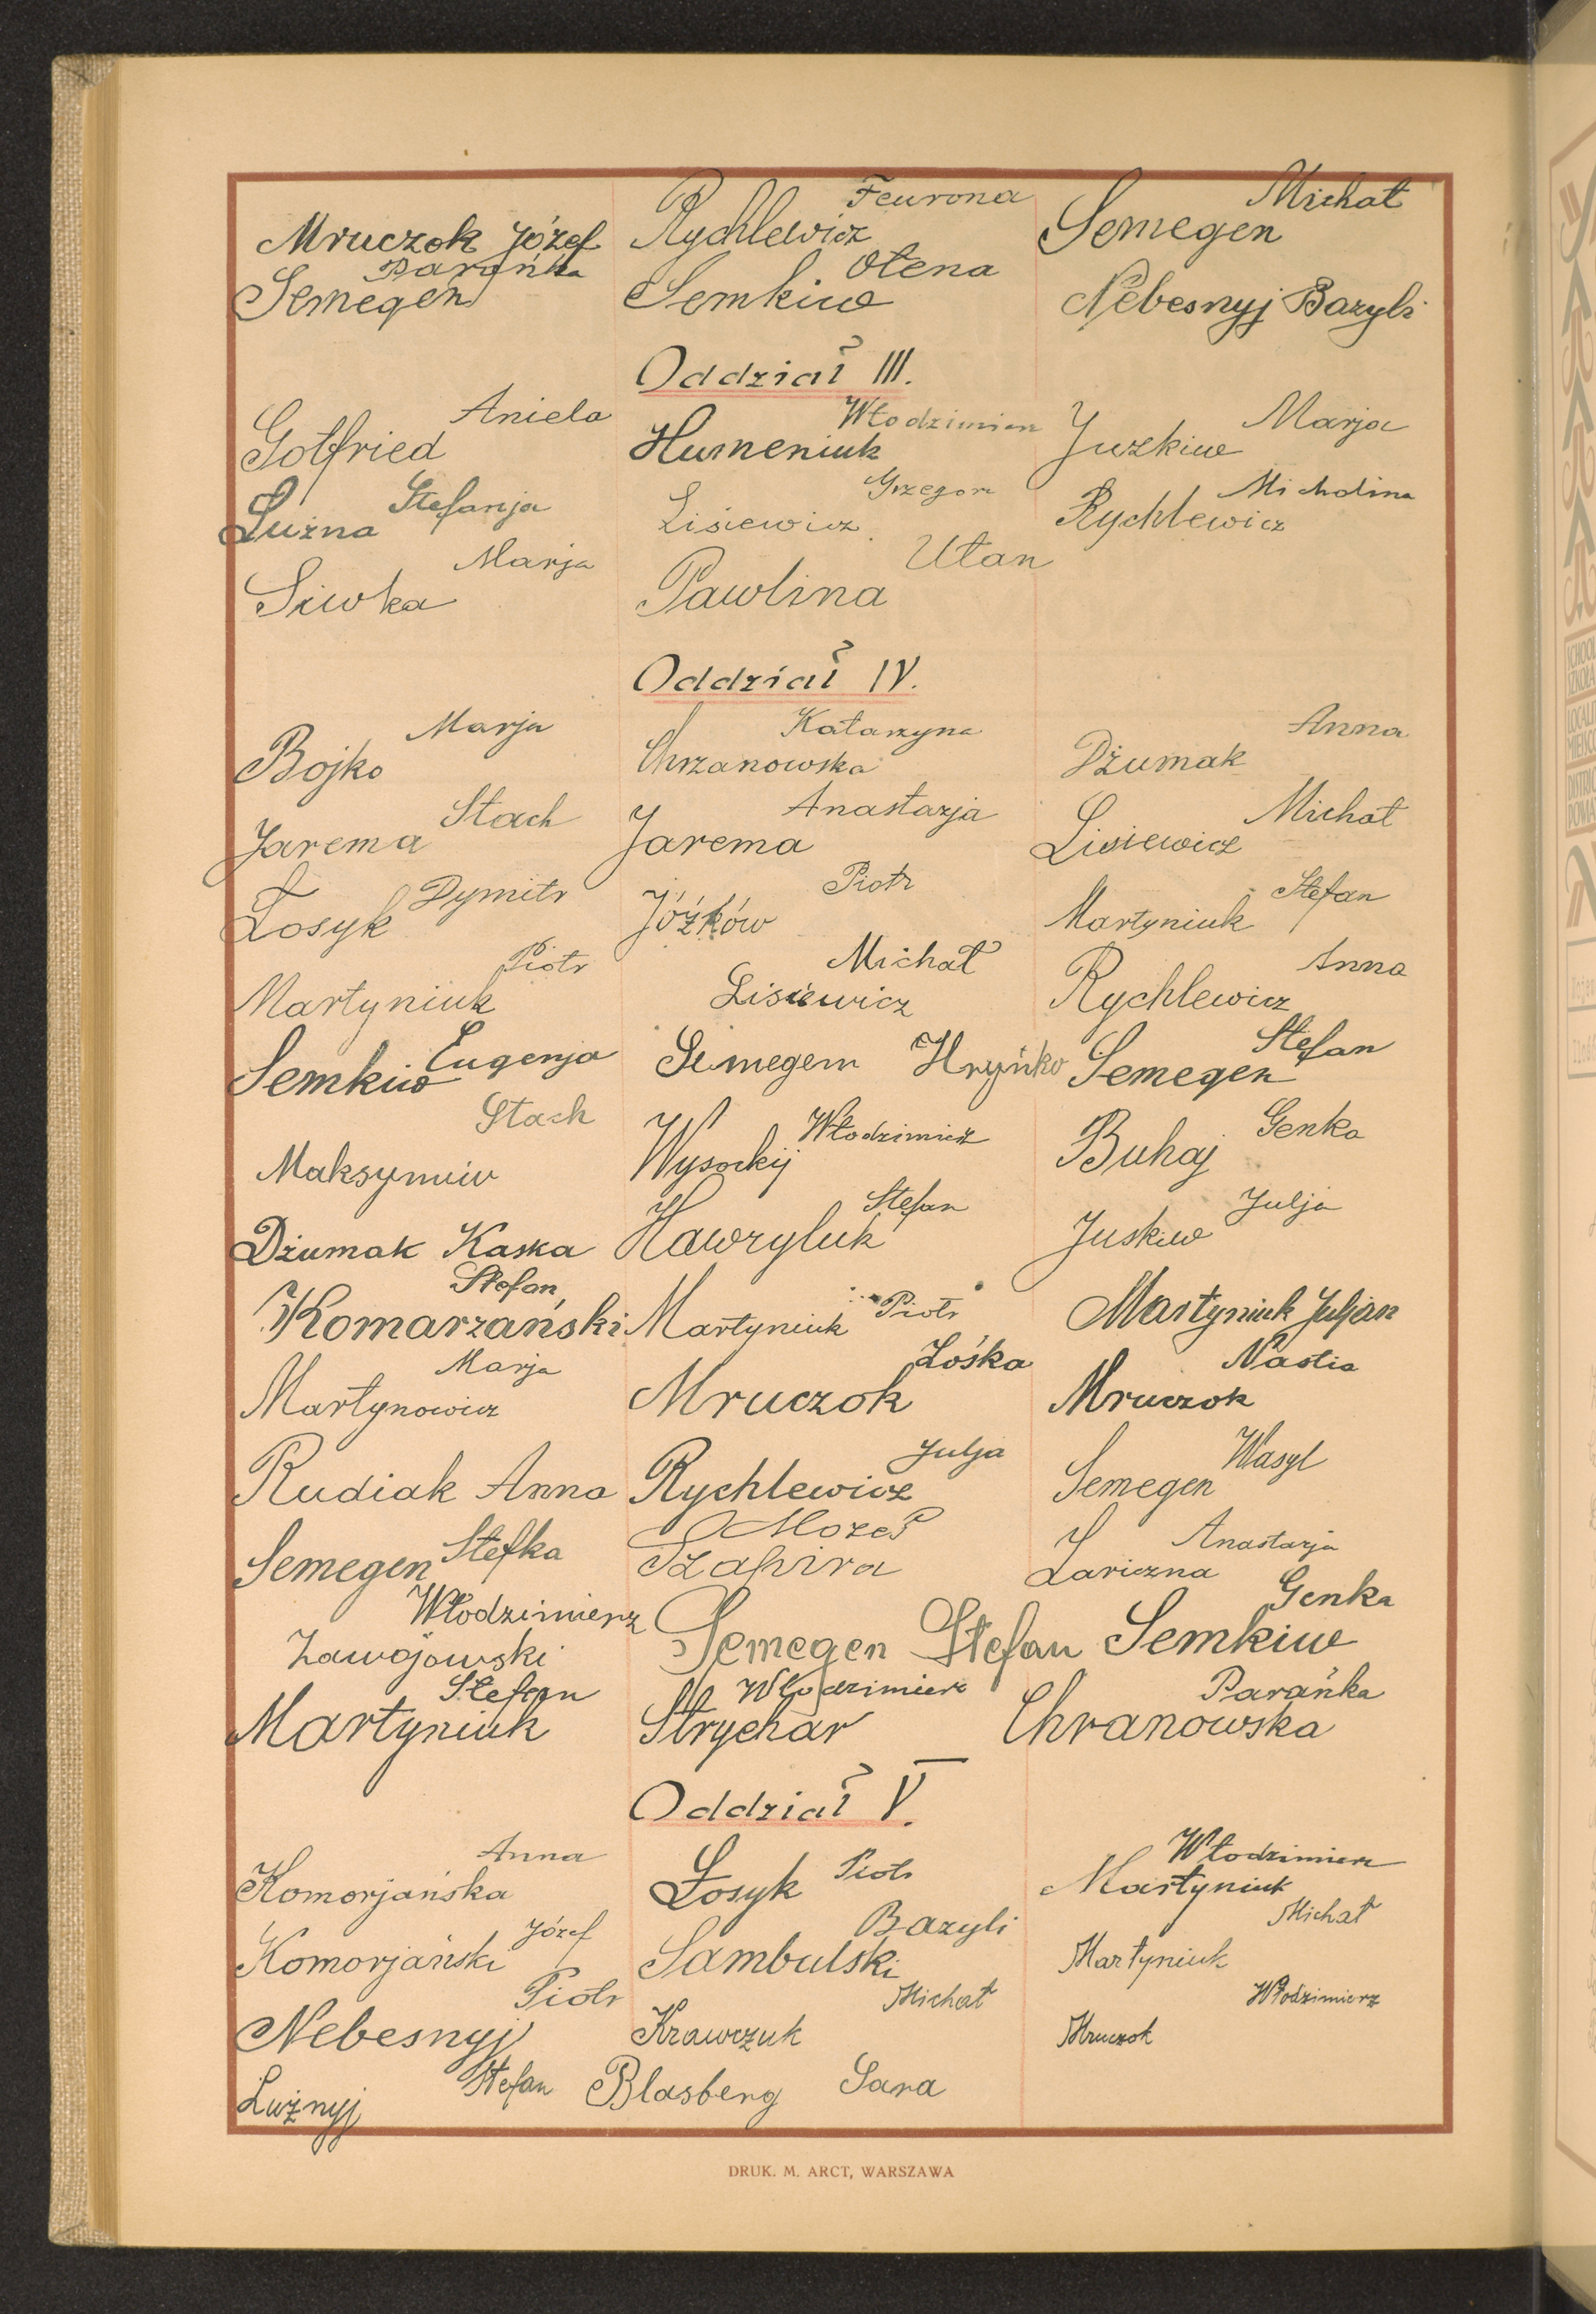 Mruczok Józef
Rychlewicz Feurona
Semegen Michał
Semegen Parańka
Semkiw Ołena
Nebesnyj Bazyli
Oddział III.
Gotfried Aniela
Humeniuk Włodzimierz
Juzkiw Marja
Luźna Stefanja
Lisiewicz Grzegorz
Rychlewicz Michalina
Siwka Marja
Pawlina Ułan
Oddział IV.
Bojko Marja
Chrzanowska Katarzyna
Dżumak Anna
Jarema Stach
Jarema Anastazja
Lisiewicz Michał
Łosyk Dymitr
Jóźków Piotr
Martyniuk Stefan
Martyniuk Piotr
Lisiewicz Michał
Rychlewicz Anna
Semkiw Eugenja
Semegem Hryńko
Semegen Stefan
Maksymiw Stach
Wysockij Włodzimierz
Buhaj Genka
Dżumak Kaska
Hawryluk Stefan
Juskiw Julja
Komarzański Stefan
Martyniuk Piotr
Martyniuk Juljan
Martynowicz Marja
Mruczok Zośka
Mruczok Nastia
Rudiak Anna
Rychlewicz Julja
Semegen Wasyl
Semegen Stefka
Szapira Mozes
Łariczna Anastazja
Zawojowski Włodzimierz
Semegen Stefan
Semkiw Genka
Martyniuk Stefan
Strychar Włodzimierz
Chranowska Parańka
Oddział V.
Komorjańska Anna
Łosyk Piotr
Martyniuk Włodzimierz
Komorjański Józef
Sambulski Bazyli
Martyniuk Michał
Nebesnyj Piotr
Krawczuk Michał
Mruczok Włodzimierz
Lużnyj Stefan
Blasberg Sara
DRUK. M. ARCT, WARSZAWA